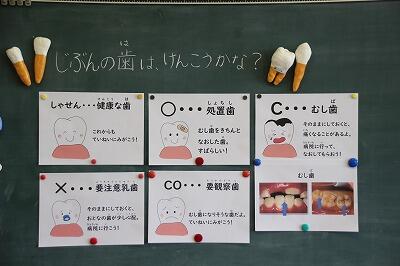 じぶんの歯は、けんこうかな?
しゃせん・・・健康な歯
これからも
ていねいにみがこう!
○・・・処置歯
むし歯をきちんと
なおした歯。
すばらしい!
C・・・むし歯
そのままにしておくと、
痛くなることがあるよ。
病院に行って、
なおしてもらおう!
むし歯
×・・・要注意乳歯
そのままにしておくと、
おとなの歯が少し心配。
病院に行こう!
CO・・・要観察歯
むし歯になりそうな歯だよ。
ていねいにみがこう!